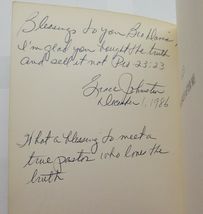 Blessings to you Bro Harris
I'm glad you bought the truth
and sell it not Pro 23:23
Grace Johnston
December 1, 1986
What a blessing to meet a
true pastor who loves the
truth